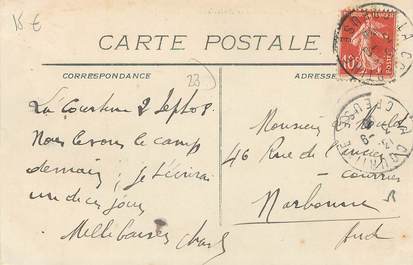 15 €
CARTE POSTALE
CORRESPONDANCE
ADRESSE
23
10c
POSTES
LA COURTINE
CREUSE
La Courtine 2 Sept 08
Nous levons le camp
demain, je t'écrirai
un de ces jours
Mille baisers Charles
Monsieur
46 Rue de l'ancien
courrier
Narbonne
Aude